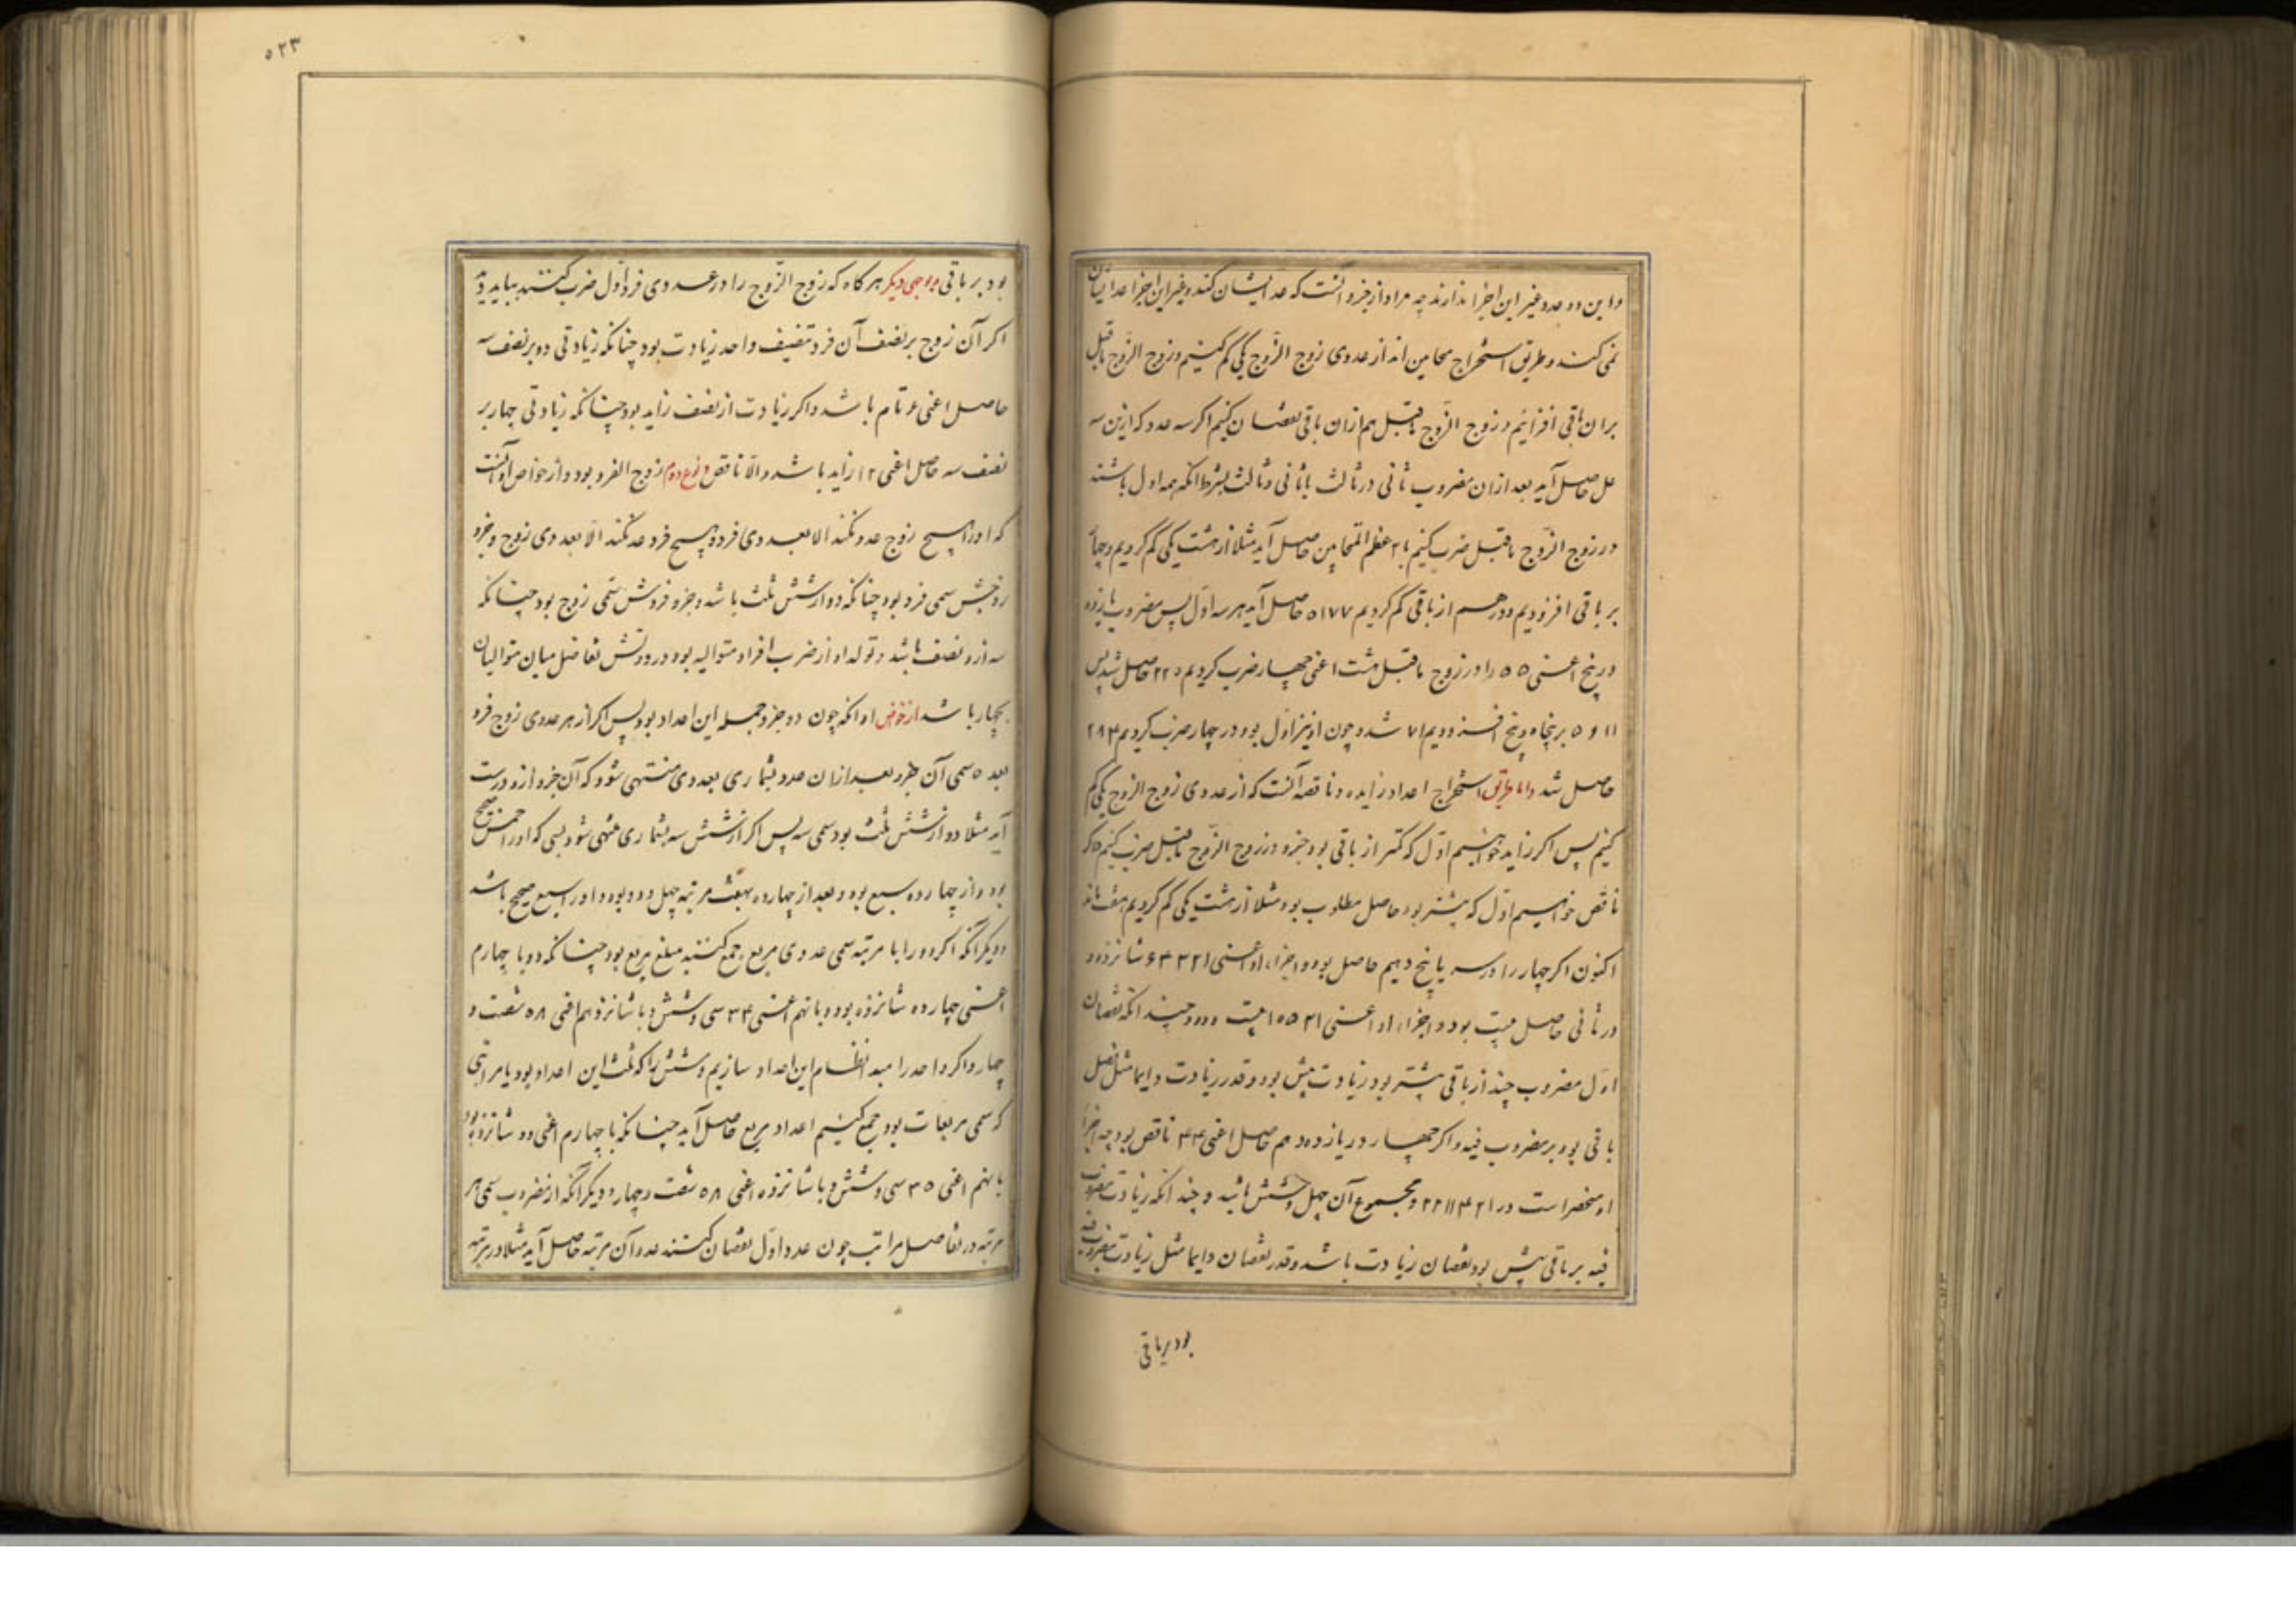 و این دو عدد غیر این اجزا ندارند چه مراد از جزو آنست که عد ایشان کند و غیر این اجزا عد ایشان
نمی کنند و طریق استخراج متحابین انه از عددی زوج الزوج یکی کم کنیم و زوج الزوج ماقبل
بران باقی افزائیم و زوج الزوج ماقبل هم ازان باقی نقصان کنیم اگر سه عدد که ازین سه
عمل حاصل آید بعد ازان مضروب ثانی در ثالث با ثانی و ثالث بشرط انکه همه اول باشند
در زوج الزوج ماقبل ضرب کنیم تا اعظم المتحابین حاصل آید مثلا از هشت یکی کم کردیم و چهار
بر باقی افزودیم و دو هم از باقی کم کردیم ۷ ۱۱ ۵ حاصل آید هر سه اول پس مضروب یازده
در پنج اعنی ۵۵ را در زوج ماقبل هشت اعنی چهار ضرب کردیم ۲۲۰ حاصل شد پس
۱۱ و ۵ بر پنجاه و پنج افزودیم ۷۱ شد و چون او نیز اول بود در چهار ضرب کردیم ۲۸۴
حاصل شد و اما طریق استخراج اعداد زایده و ناقصه آنست که از عددی زوج الزوج یکی کم
کنیم پس اگر زاید خواهیم اول که کمتر از باقی بود جزو در زوج الزوج ماقبل ضرب کنیم و اگر
ناقص خواهیم اول که بیشتر بود حاصل مطلوب بود مثلا از هشت یکی کم کردیم هفت ماند
اکنون اگر چهار را در سه یا پنج دهیم حاصل بود و اجزاء او اعنی ۱ ۲ ۳ ۴ ۶ شانزده و
در ثانی حاصل بیست بود و اجزاء او اعنی ۱ ۲ ۴ ۵ ۱۰ بیست و دو و چند انکه نقصان
اول مضروب چند از باقی بیشتر بود زیادت بیش بود و قدر زیادت دایما مثل فضل
باقی بود بر مضروب فیه و اگر چهار در یازده دهم حاصل اعنی ۴۴ ناقص بود چه اجزا
او منحصر است در ۱ ۲ ۴ ۱۱ ۲۲ و مجموع آن چهل و شش باشد و چند انکه زیادت مضروب
فیه بر باقی بیش بود نقصان زیادت باشد و قدر نقصان دایما مثل زیادت مضروب فیه
بود بر باقی
۵۲۳
بود بر باقی و بوجهی دیگر هر گاه که زوج الزوج را در عددی فرد اول ضرب کنند بباید دید
اگر آن زوج بر نصف آن فرد بنصف واحد زیادت بود چنانکه زیادتی دو بر نصف سه
حاصل اعنی ۶ تام باشد و اگر زیادت از نصف زاید بود چنانکه زیادتی چهار بر
نصف سه حاصل اعنی ۱۲ زاید باشد و الا ناقص و نوع دوم زوج الفرد بود و از خواص او آنست
که او را هیچ زوج عد نکند الا بعددی فرد و هیچ فرد عد نکند الا بعددی زوج و جزو
زوجش سمی فرد بود چنانکه دو از شش ثلث باشد و جزو فردش سمی زوج بود چنانکه
سه ازو نصف باشد و تولد او از ضرب افراد متوالیه بود در دو پس تفاضل میان متوالیان
بچهار باشد از خواص او انکه چون دو جزو جمله این اعداد بود پس اگر از هر عددی زوج فرد
بعده سمی آن جزو بعد ازان عدد بشماری بعددی منتهی شود که آن جزو ازو درست
آید مثلا دو از شش ثلث بود سمی سه پس اگر از شش سه بشماری منتهی شود بسی که او را خمس صحیح
بود و از چهارده سبع بود و بعد از چهارده بهفت مرتبه چهل و دو بود و او را سبع صحیح باشد
و دیگر انکه اگر دو را با مرتبه سمی عددی مربع جمع کنند مبلغ مربع بود چنانکه دو با چهارم
اعنی چهارده شانزده بود و با نهم اعنی ۳۴ سی و شش و با شانزدهم اعنی ۵۸ شصت و
چهار و اگر واحد را مبدا نظام این اعداد سازیم و شش را که ثلث این اعداد بود با مراتبی
که سمی مربعات بود جمع کنیم اعداد مربع حاصل آید چنانکه با چهارم اعنی ده شانزده بود
با نهم اعنی ۳۰ سی و شش و با شانزده اعنی ۵۸ شصت و چهار و دیگر انکه از مضروب سمی هر
مرتبه در تفاصل مراتب چون عدد اول نقصان کنند عدد آن مرتبه حاصل آید مثلا در مرتبه